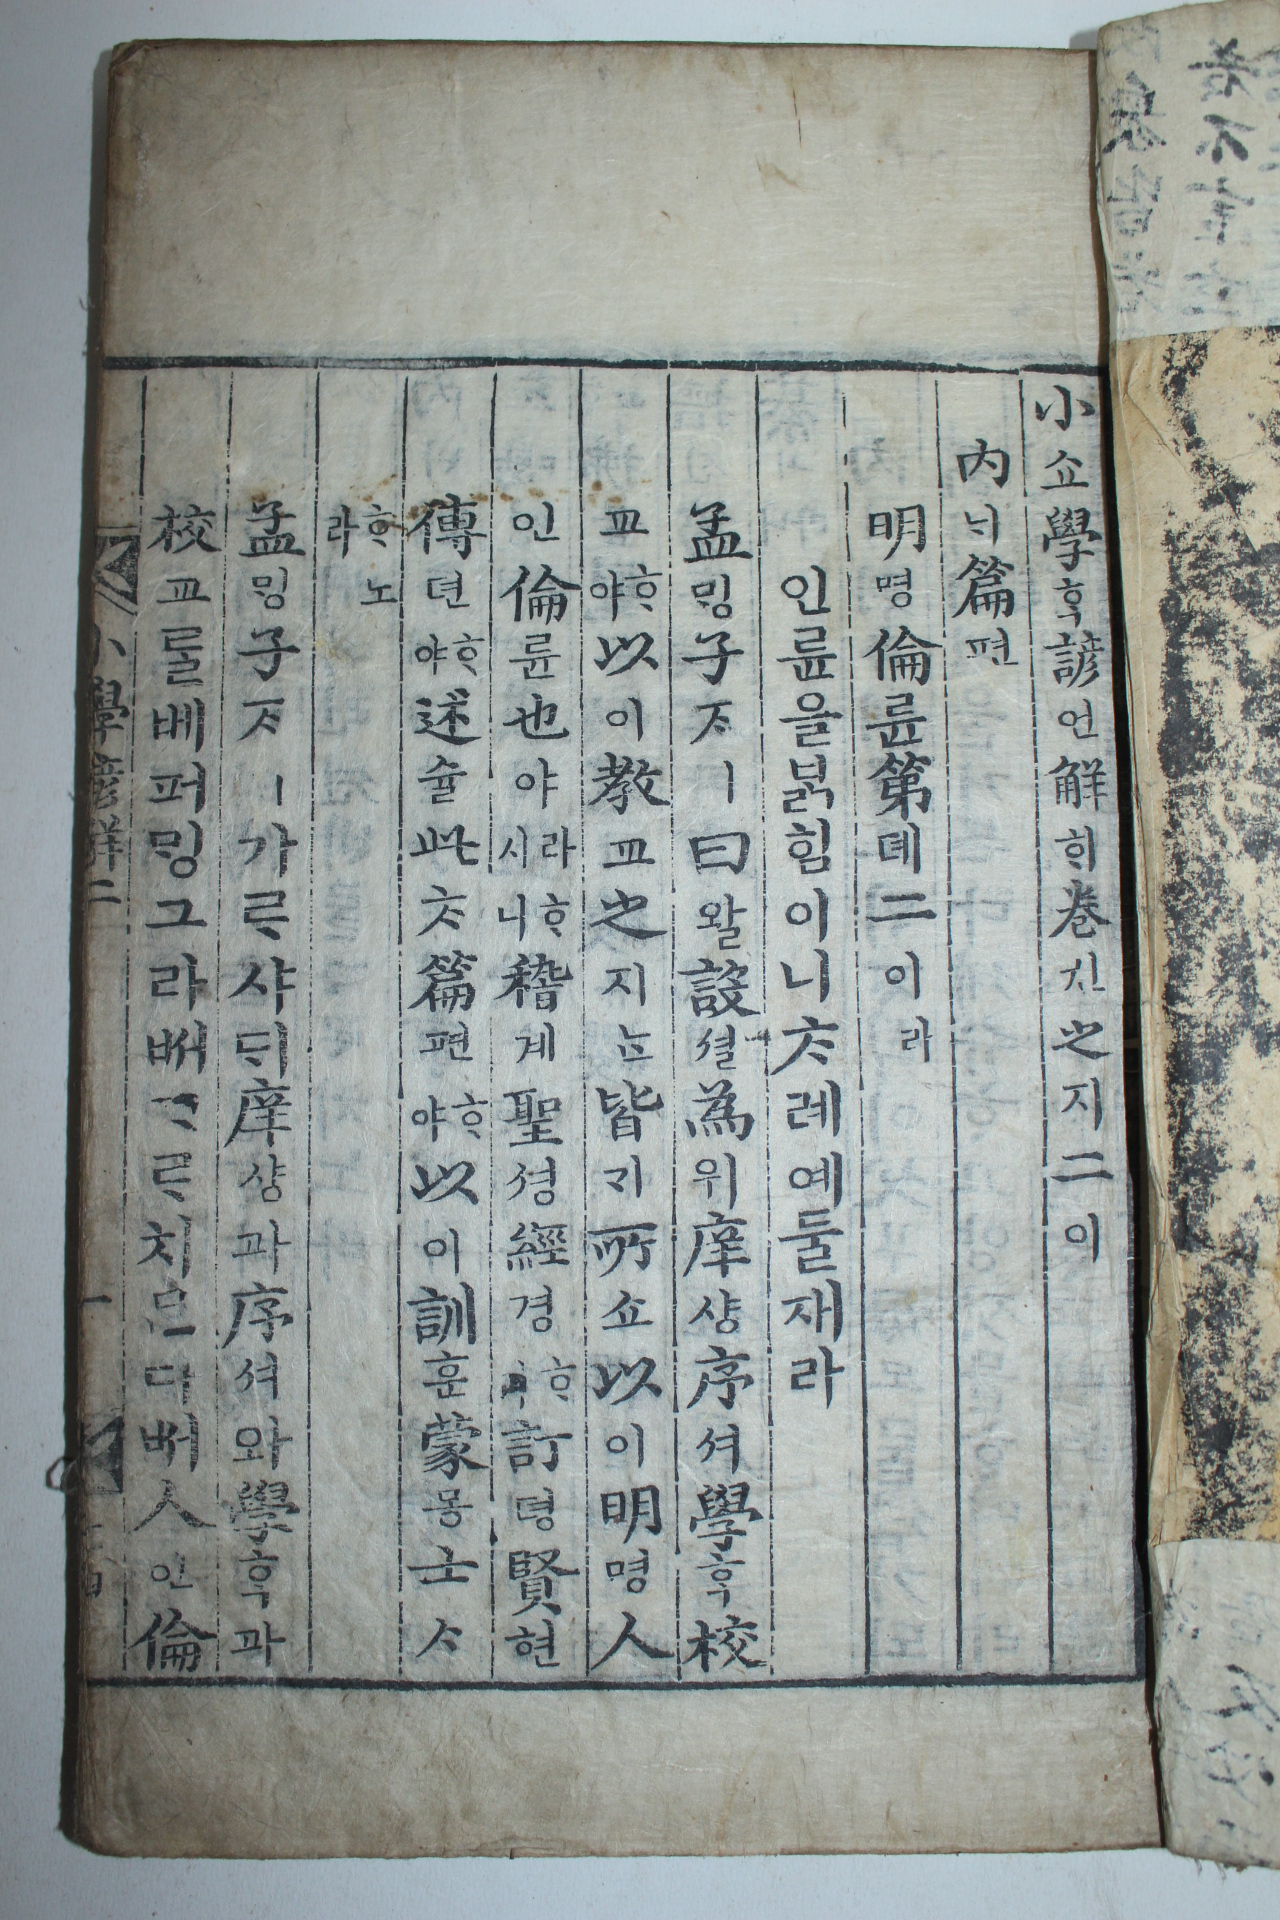 小쇼學ᄒᆞᆨ諺언解ᄒᆡ卷권之지二이
內ᄂᆡ篇편
明명倫륜第뎨二이라
인륜을붉힘이니ᄎᆞ례예둘재라
孟ᄆᆡᆼ子ᄌᆞㅣ曰왈設셜為위庠샹序셔學ᄒᆞᆨ校
교ᄒᆞ야以이教교之지ᄂᆞᆫ皆ᄀᆡ所쇼以이明명人
인倫륜也야라ᄒᆞ시니稽계聖셩經경ᄒᆞ訂뎡賢현
傳뎐ᄒᆞ야述슐此ᄎᆞ篇편ᄒᆞ야以이訓훈蒙몽士ᄉᆞ
ᄒᆞ노라
孟ᄆᆡᆼ子ᄌᆞㅣ가ᄅᆞ샤ᄃᆡ庠샹과序셔와學ᄒᆞᆨ과
校교ᄅᆞᆯ베퍼ᄆᆡᆼ그라ᄡᅥᄀᆞᄅᆞ치ᄆᆞᆫ다ᄡᅥ人인倫
小學諺解二
一